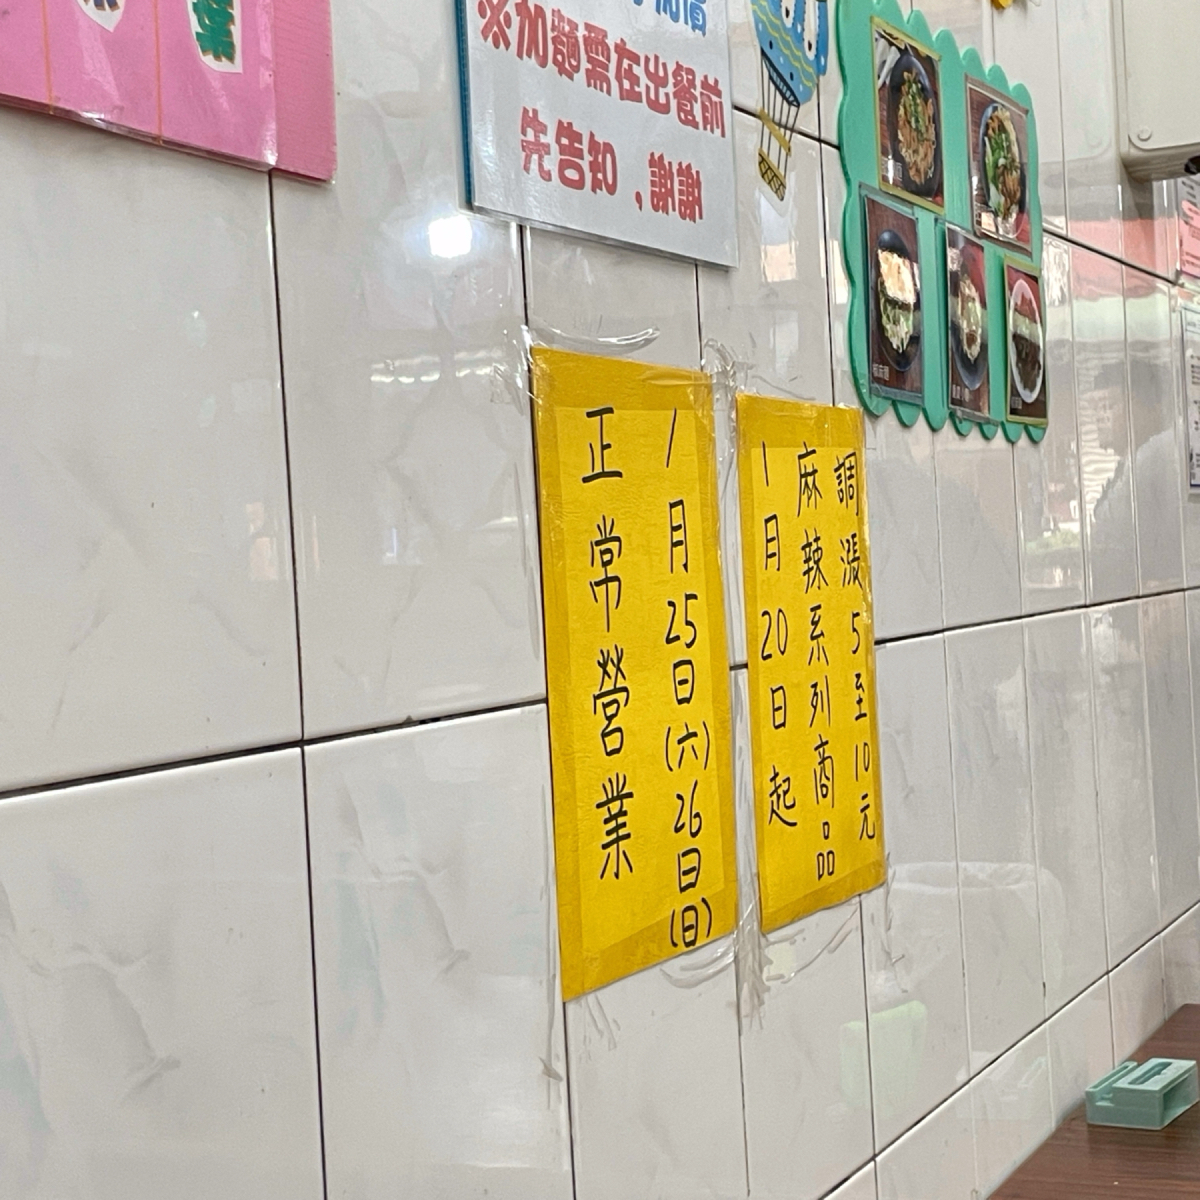 加價
※加麵需在出餐前
先告知，謝謝
1月25日(六)26日(日)
正常營業
1月20日起
麻辣系列商品
調漲5至10元